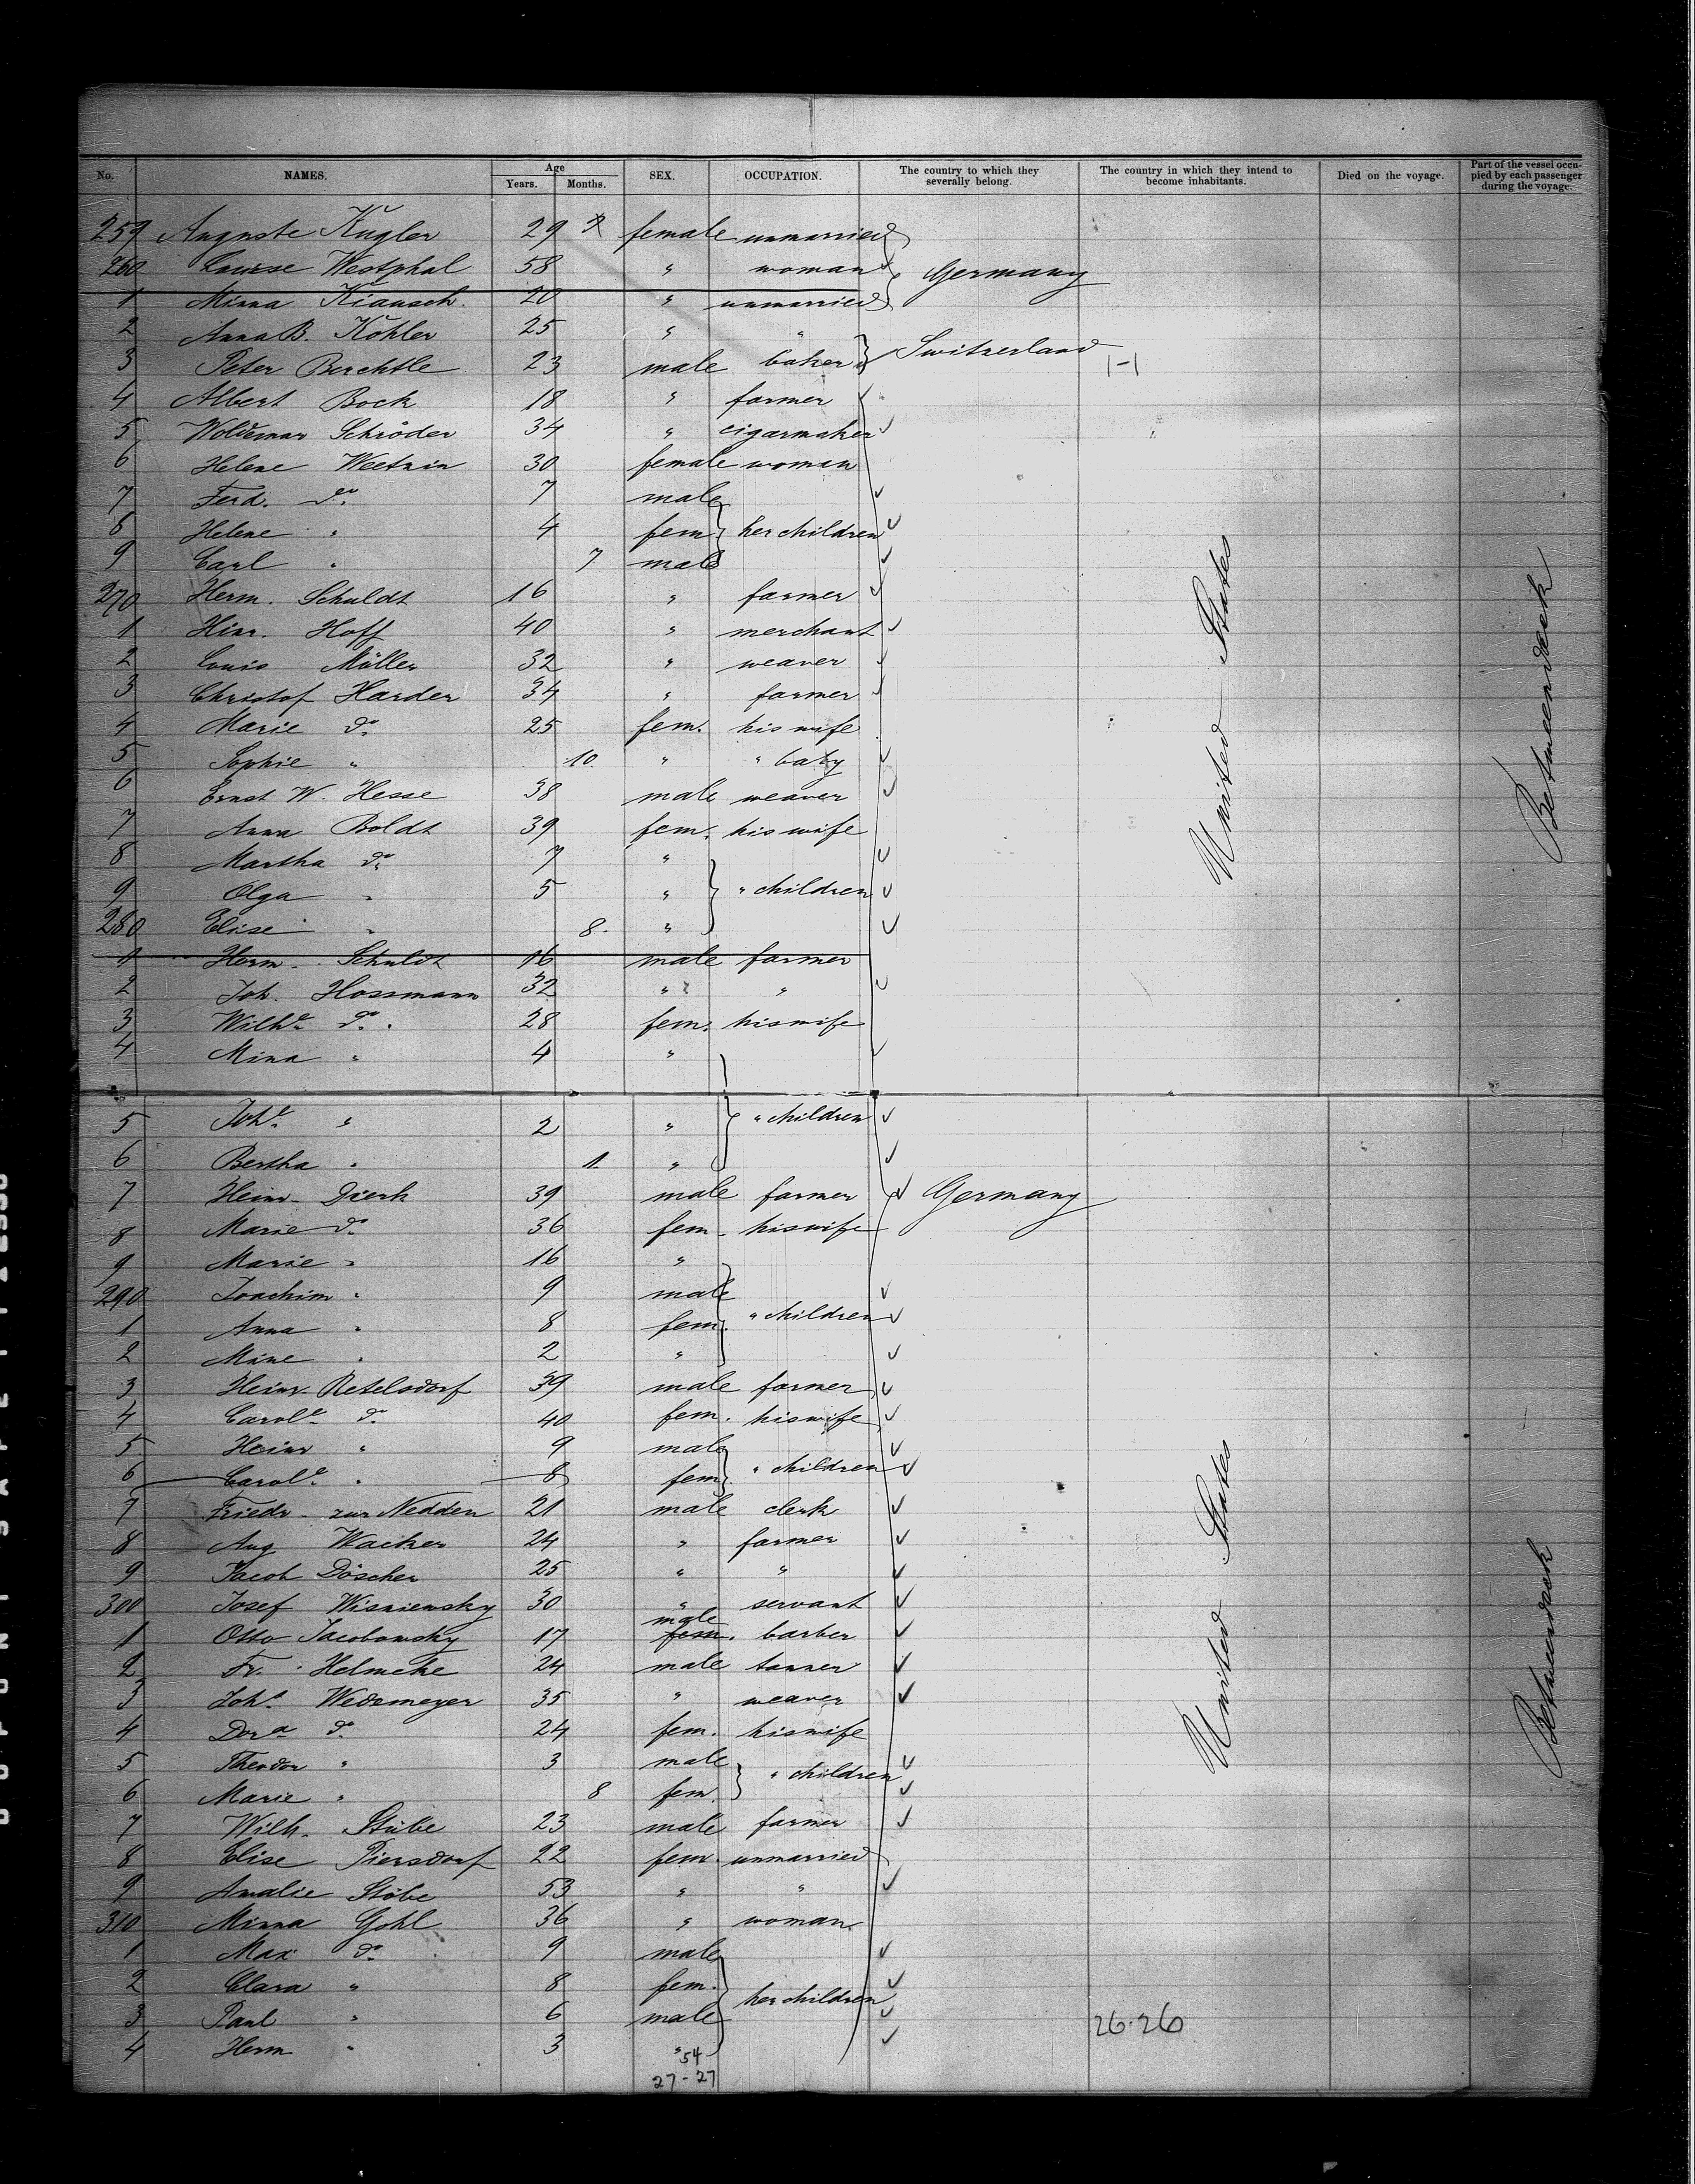 No. NAMES. Age Years. Months. SEX. OCCUPATION. The country to which they severally belong. The country in which they intend to become inhabitants. Died on the voyage. Part of the vessel occupied by each passenger during the voyage.
259 Auguste Kugler 29 female unmarried
260 Louise Westphal 58 " woman Germany
1 Minna Kiausch 20 " unmarried
2 Anna B. Kohler 25 " "
3 Peter Berchtle 23 male baker Switzerland 1-1
4 Albert Bock 18 " farmer
5 Woldemar Schröder 34 " cigarmaker
6 Helene 30 female woman
7 Ferd. do. 7 male
8 Helene " 4 fem her children
9 Carl " 7 male
270 Herm. Schuldt 16 " farmer
1 Hinr. Hoff 40 " merchant
2 Louis Müller 32 " weaver
3 Christof Harder 34 " farmer
4 Marie do. 25 fem. his wife
5 Sophie " 10 " " baby
6 Ernst W. Hesse 38 male weaver
7 Anna Boldt 39 fem. his wife
8 Martha do. 7 "
9 Olga " 5 " " children
280 Elise " 8. "
1 Herm. Schuldt 16 male farmer
2 Joh. Hossmann 32 " "
3 Wilhe. do. 28 fem. his wife
4 Mina " 4 "
United States
Betweendeck
5 Johe. " 2 " " children
6 Bertha " 1. "
7 Heinr. Dierk 39 male farmer Germany
8 Marie do. 36 fem. his wife
9 Marie " 16 "
290 Joachim " 9 male
1 Anna " 8 fem. " children
2 Mine " 2 "
3 Heinr. Retelsdorf 39 male farmer
4 Carole. do. 40 fem. his wife
5 Heinr " 9 male
6 Carole. " 8 fem. " children
7 Friedr. zur Nedden 21 male clerk
8 Aug Wacker 24 " farmer
9 Jacob Döscher 25 " "
300 Josef Wisniewsky 30 " servant
1 Otto Jacobowsky 17 male fem. barber
2 Fr. Helmcke 24 male tanner
3 Johs. Wedemeyer 35 " weaver
4 Dora do. 24 fem. his wife
5 Theodor " 3 male
6 Marie " 8 fem. " children
7 Wilh. Stübe 23 male farmer
8 Elise Piersdorf 22 fem. unmarried
9 Amalie Stöbe 53 " "
310 Minna Gohl 36 " woman
1 Max do. 9 male
2 Clara " 8 fem. her children
3 Paul " 6 male
4 Herm " 3 "
United States
Betweendeck
26-26
54
27-27